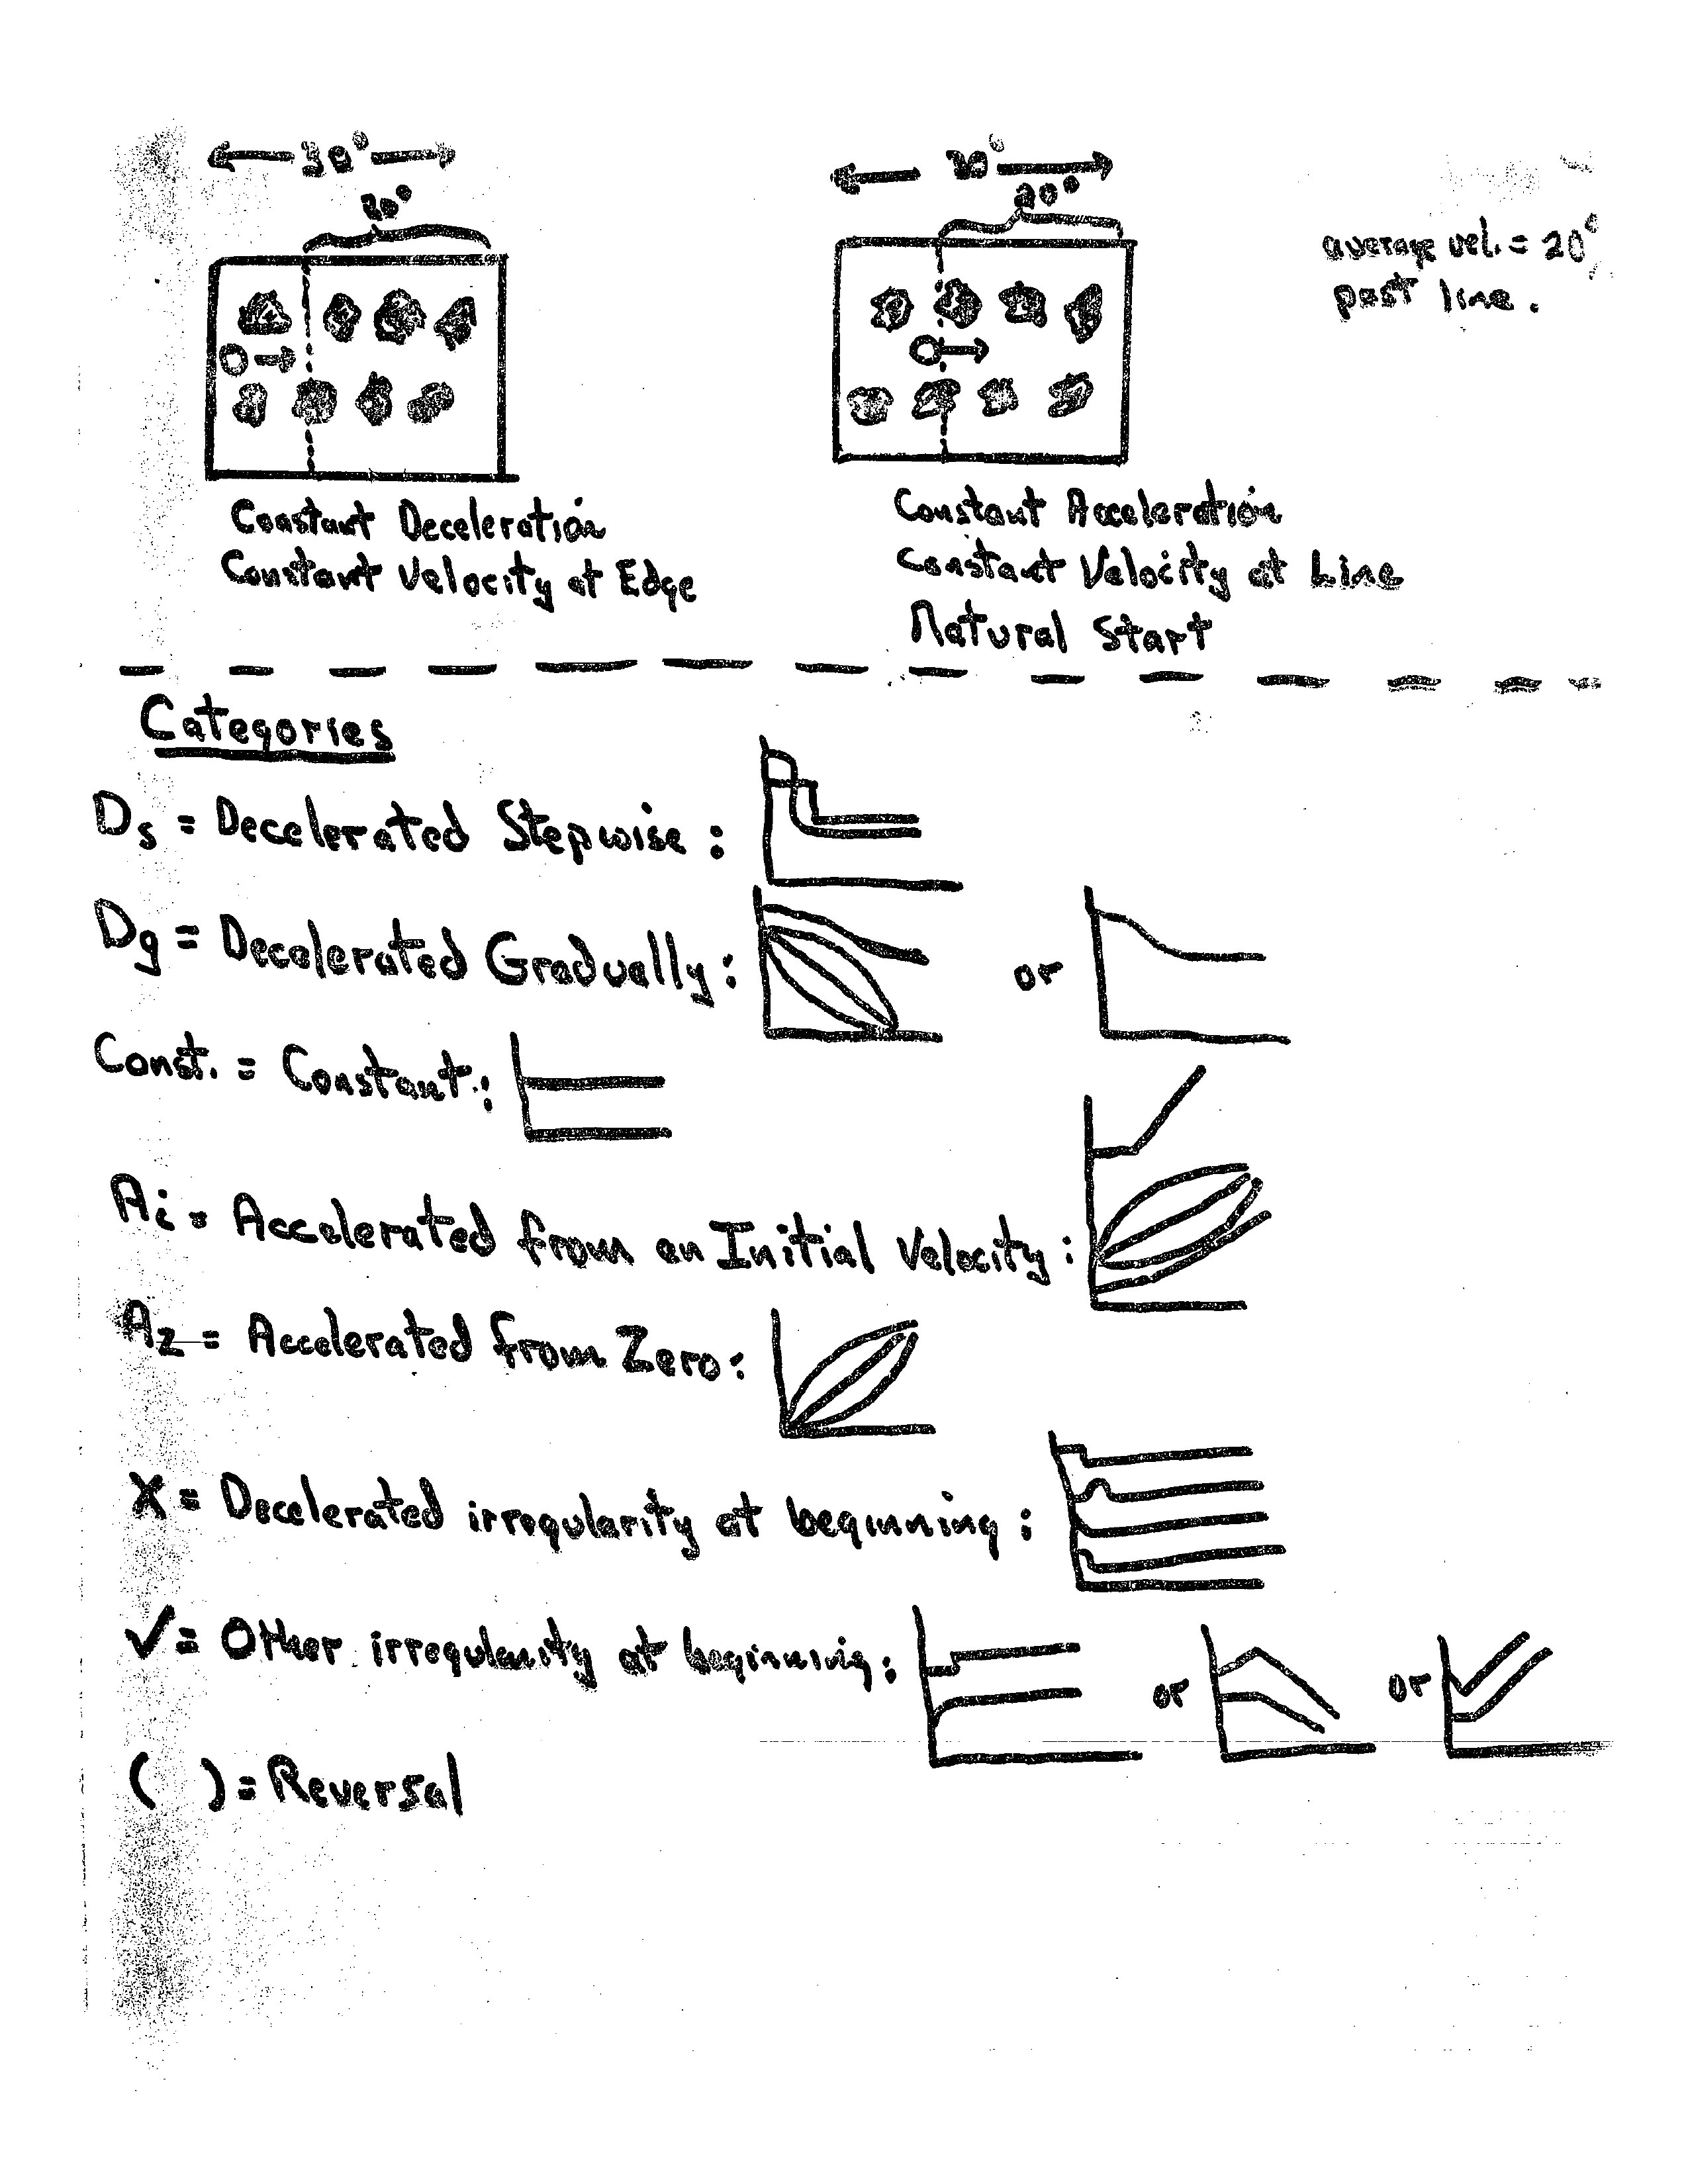 30°
20°
30°
20°
average vel. = 20°/
past line.
Constant Deceleration
Constant Velocity at Edge
Constant Acceleration
Constant Velocity at Line
Natural Start
Categories
Ds = Decelerated Stepwise :
Dg = Decelerated Gradually : or
Const. = Constant :
Ai = Accelerated from an Initial Velocity :
Az = Accelerated from Zero :
X = Decelerated irregularity at beginning :
✓ = Other irregularity at beginning : or or
( ) = Reversal